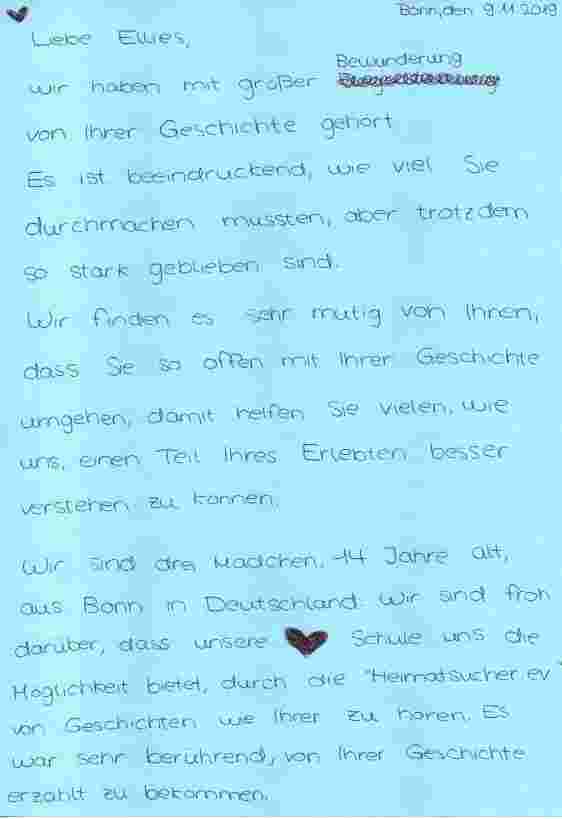 Bonn, den 9.11.2019
Liebe Ellies,
Bewunderung
wir haben mit großer
von Ihrer Geschichte gehört
Es ist beeindruckend, wie viel Sie
durchmachen mussten, aber trotzdem
so stark geblieben sind.
Wir finden es sehr mutig von Ihnen,
dass Sie so offen mit Ihrer Geschichte
umgehen, damit helfen Sie vielen, wie
uns, einen Teil Ihres Erlebten besser
verstehen zu können.
Wir sind drei Mädchen, 14 Jahre alt,
aus Bonn in Deutschland. Wir sind froh
darüber, dass unsere Schule uns die
Möglichkeit bietet, durch die "Heimatsucher e.V"
von Geschichten wie Ihrer zu hören. Es
war sehr berührend, von Ihrer Geschichte
erzählt zu bekommen.